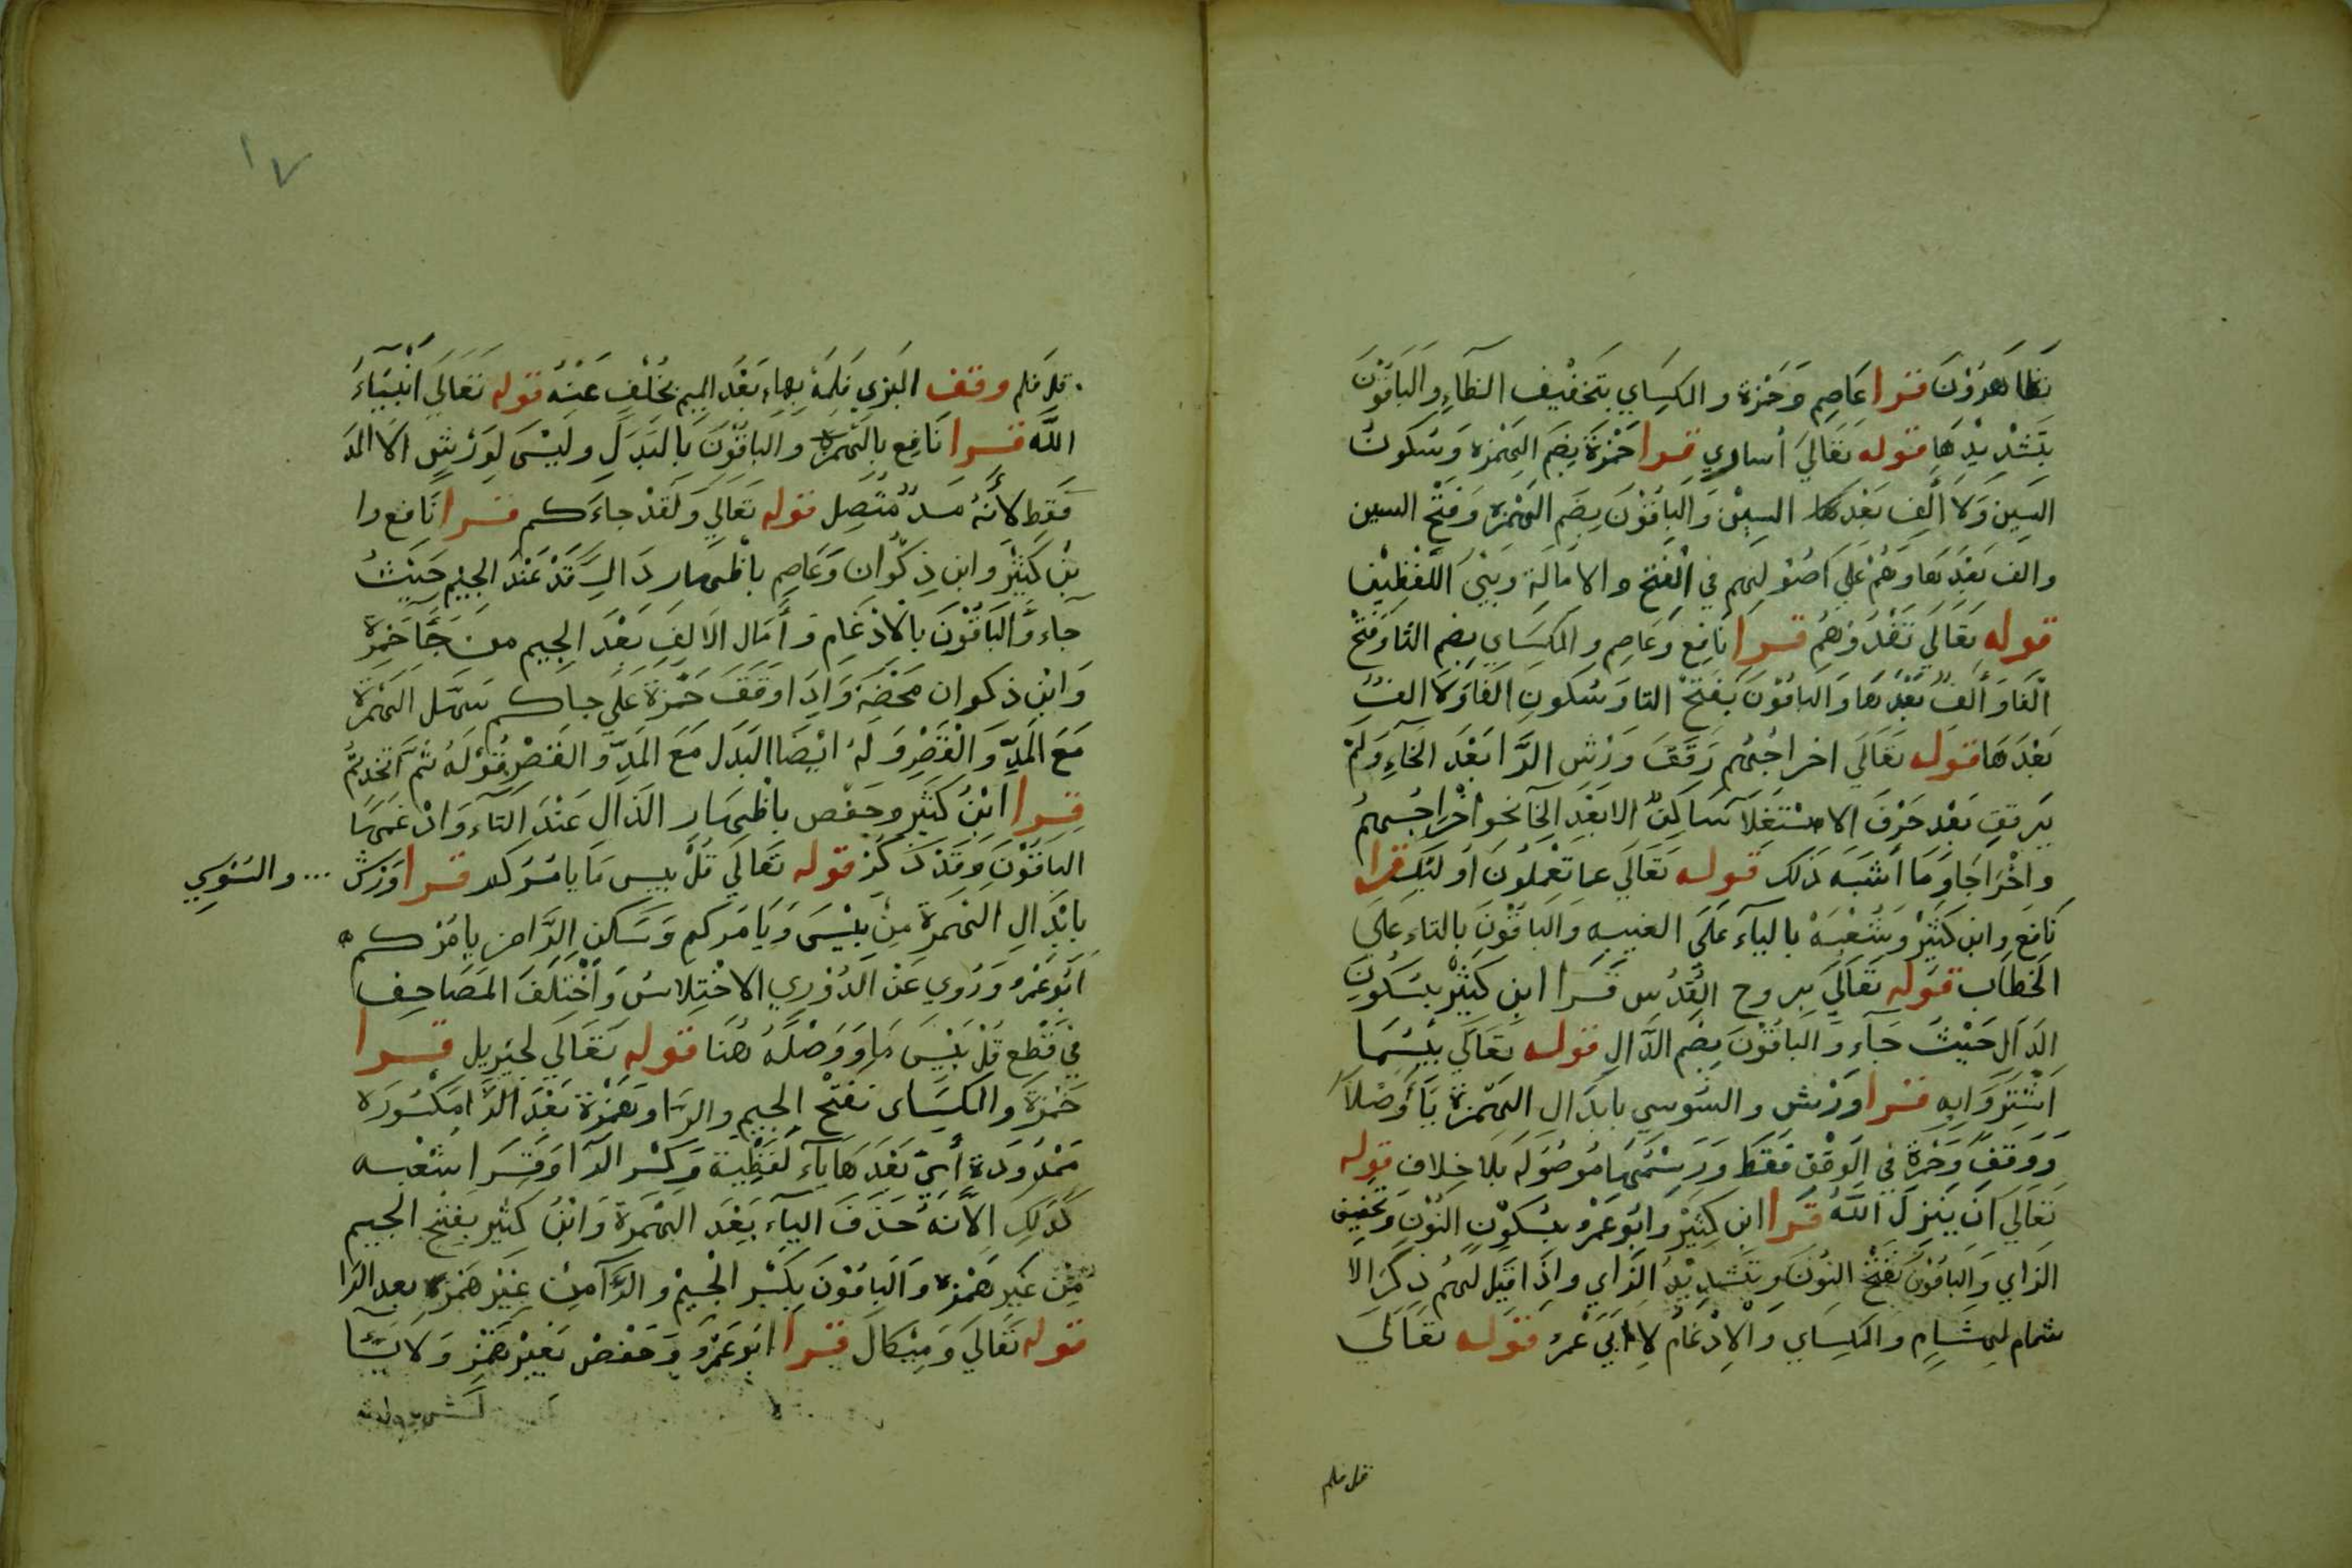 تظاهرون قرا عاصم وحمزة والكساي بتخفيف الظاء والباقون
بتشديدها قوله تعالى أساري قرا حمزة بضم الهمزة وسكون
السين ولا ألف بعدها السين والباقون بضم الهمزة وفتح السين
والف بعدها وهم علي اصولهم في الفتح والامالة وبين اللفظين
قوله تعالي تفدوهم قرا نافع وعاصم والكساي بضم التا وفتح
الفا وألف بعدها والباقون بفتح التا وسكون الفا ولا الف
بعدها قوله تعالي اخراجهم رقق ورش الرا بعد الخاء ولم
يرقق بعد حرف الاستعلا ساكن الا بعد الخا نحو اخراجهم
واخراجا وما اشبه ذلك قوله تعالي عما تعملون اوليك قرا
نافع وابن كثير وشعبة بالياء على الغيبه والباقون بالتاء علي
الخطاب قوله تعالي بروح القدس قرا ابن كثير بسكون
الدال حيث جاء والباقون بضم الدال قوله تعالي بيسما
اشتروا به قرا ورش والسوسي بابدال الهمزة ياء وصلا
ووقفا وحمزة في الوقف فقط ورسمها موصوله بلا خلاف قوله
تعالي ان ينزل الله قرا ابن كثير وابو عمر بسكون النون وتخفيف
الزاي والباقون بفتح النون وتشديد الزاي واذا قيل لهم ذكر الا
شمام لهشام والكساي والادغام لابي عمر قوله تعالي
قل فلم
١٧
قل فلم وقف البزي فلمه بهاء بعد الميم بخلف عنه قوله تعالي انبياء
الله قرا نافع بالهمزة والباقون بالبدل وليس لورش الا المد
فقط لأنه مد متصل قوله تعالي ولقد جاءكم قرا نافع وا
بن كثير وابن ذكوان وعاصم باظهار دال قد عند الجيم حيث
جاء والباقون بالادغام وأمال الالف بعد الجيم من جا حمزة
وابن ذكوان محضة واذا وقف حمزة على جاكم سهل الهمزة
مع المد والقصر وله ايضا البدل مع المد والقصر قوله ثم اتخذتم
قرا ابن كثير وحفص باظهار الذال عند التاء وادغمها
الباقون وقد ذكر قوله تعالي قل بيس ما يامركم قرا ورش ... والسوسي
بابدال الهمزة من بيس ويامركم وسكن الرا من يامركم
ابو عمر وروي عن الدوري الاختلاس وأختلف المصاحف
في قطع قل بيس ما ووصله هنا قوله تعالي لجبريل قرا
حمزة والكساى بفتح الجيم والرا وهمزة بعد الرا مكسورة
ممدودة أي بعدها ياء لفظية وكسر الرا وقرا شعبه
كذلك الا أنه حذف الياء بعد الهمزة وابن كثير بفتح الجيم
من غير همزة والباقون بكسر الجيم والرا من غير همزة بعد الرا
قوله تعالي وميكال قرا ابو عمرو وحفص بغير همز ولا يا